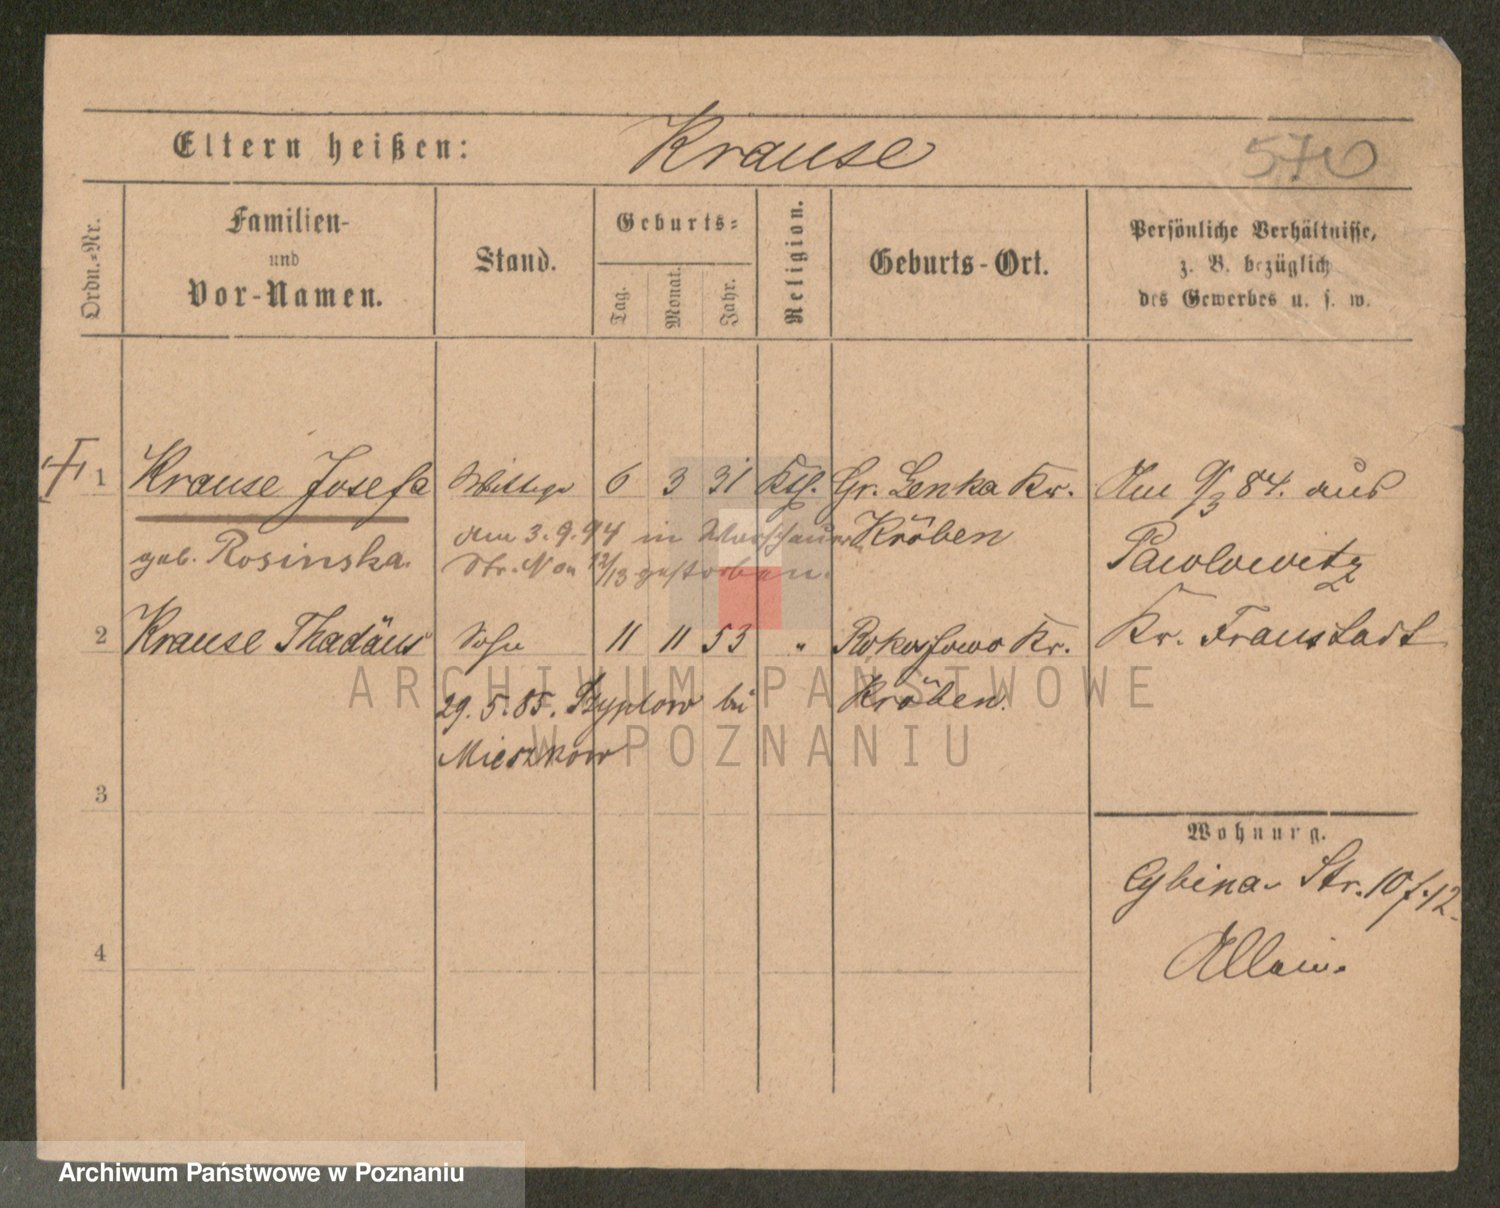 Eltern heißen: Krause 570
Ordn.-Nr.
Familien-
und
Vor-Namen.
Stand.
Geburts-
Tag.
Monat.
Jahr.
Religion.
Geburts-Ort.
Persönliche Verhältnisse,
z. B. bezüglich
des Gewerbes u. s. w.
1 Krause Josefa Wittwe 6 3 31 Kth. Gr. Lenka Kr. Am 9/3 84. aus
am 3.9.94 in Warschauer Kröben
geb. Rosinska. Str. No 12/13 gestorben. Pawlowitz
2 Krause Thadäus Sohn 11 11 53 " Rokossowo Kr. Kr. Fraustadt
29.5.85. bei Kröben.
Mieszkow
3
Wohnung.
Cybina- Str. 10 f. 12.
4
Allein.
ARCHIWUM PAŃSTWOWE
W POZNANIU
Archiwum Państwowe w Poznaniu